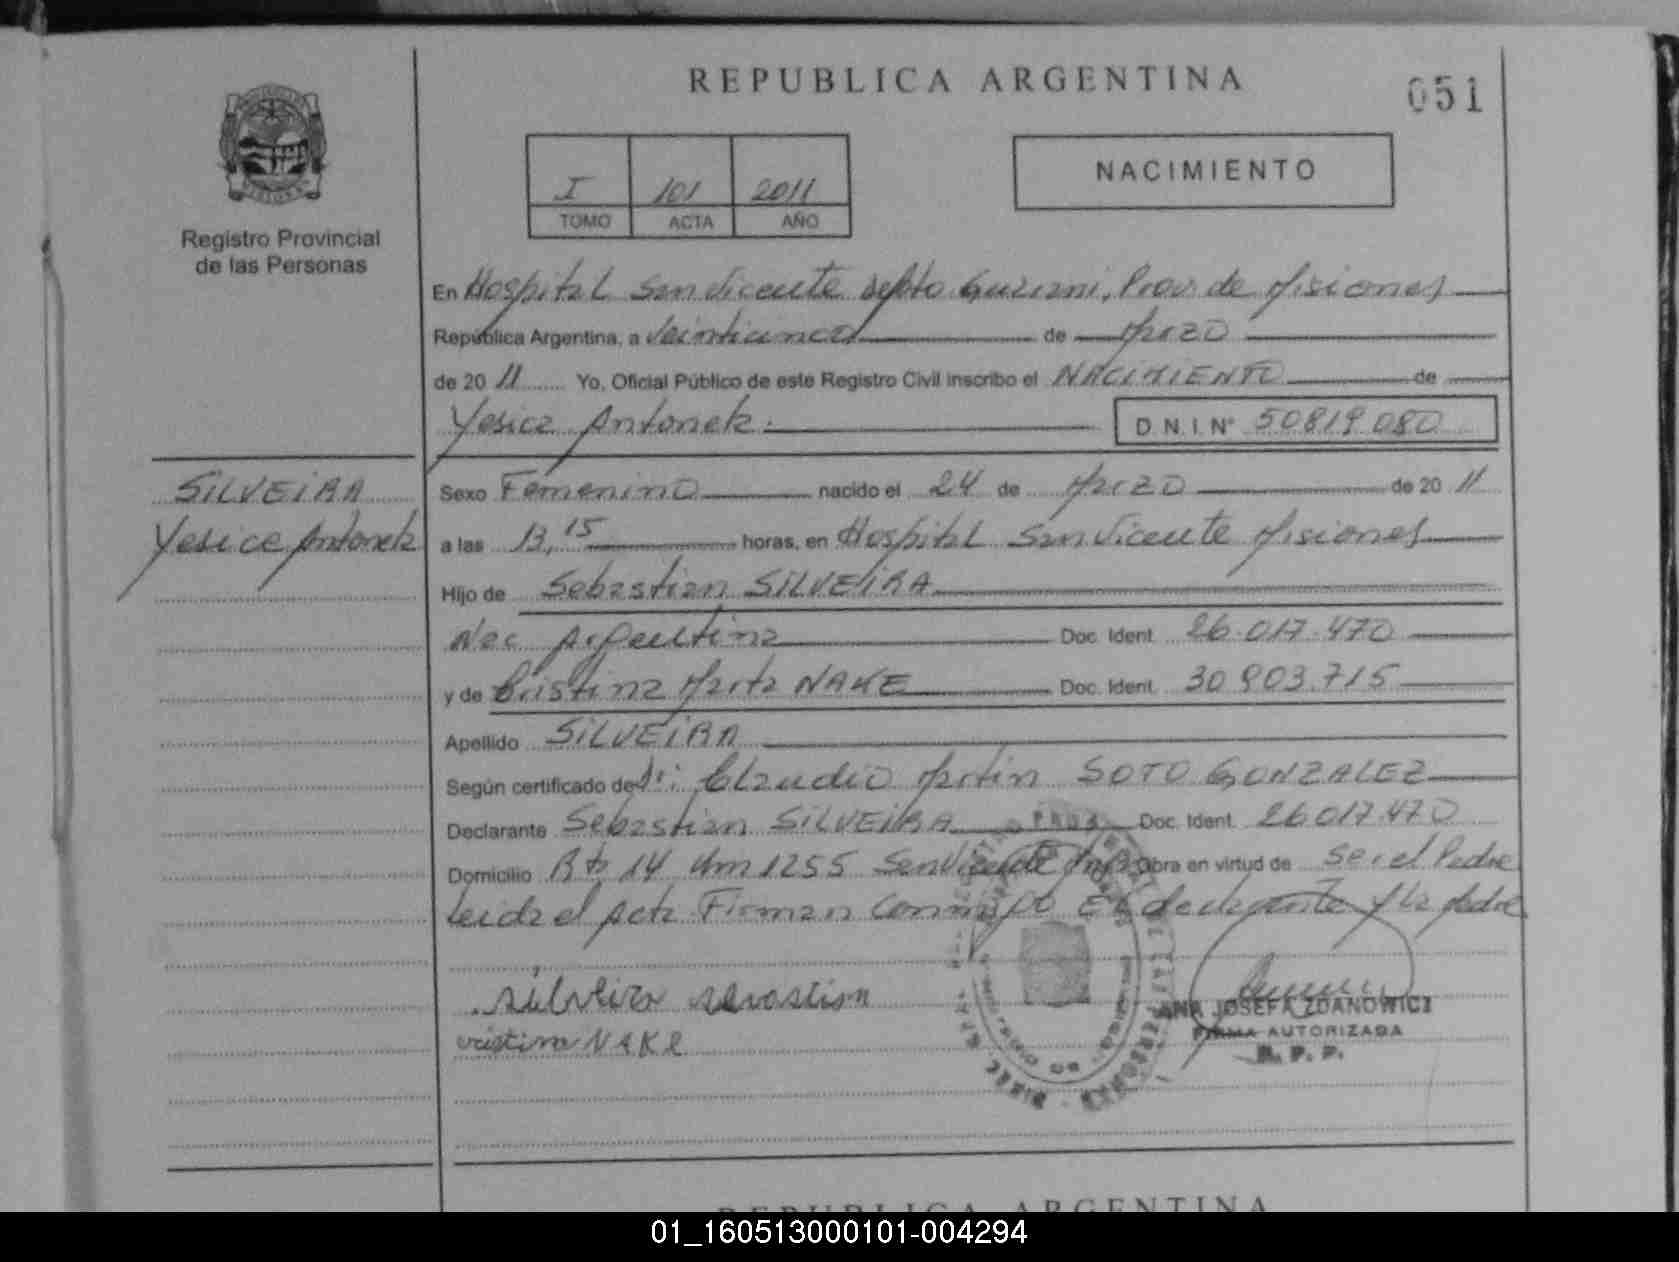 REPUBLICA ARGENTINA
051
Registro Provincial
de las Personas
I 101 2011
TOMO ACTA AÑO
NACIMIENTO
En Hospital San Vicente Depto Guarani, Prov. de Misiones
República Argentina, a Veinticinco de Marzo
de 20 11 Yo, Oficial Público de este Registro Civil inscribo el NACIMIENTO de
Yesica Antonela D.N.I. N° 50819.080
SILVEIRA
Yesica Antonela
Sexo Femenino nacido el 24 de Marzo de 20 11
a las 13,15 horas, en Hospital San Vicente Misiones
Hijo de Sebastian SILVEIRA
Nac Argentina Doc. Ident. 26.017.470
y de Cristina Marta NAKE Doc. Ident. 30.903.715
Apellido SILVEIRA
Según certificado de Dr: Claudio Martin SOTO GONZALEZ
Declarante Sebastian SILVEIRA Doc. Ident. 26.017.470
Domicilio Rta 14 Km 1255 San Vicente Mnes Obra en virtud de Ser el Padre
Leida el Acta Firman conmigo El declarante y la Madre
silveira sevastian
cristina NAKE
ANA JOSEFA ZDANOWICZ
FIRMA AUTORIZADA
R. P. P.
REPUBLICA ARGENTINA
01_160513000101-004294